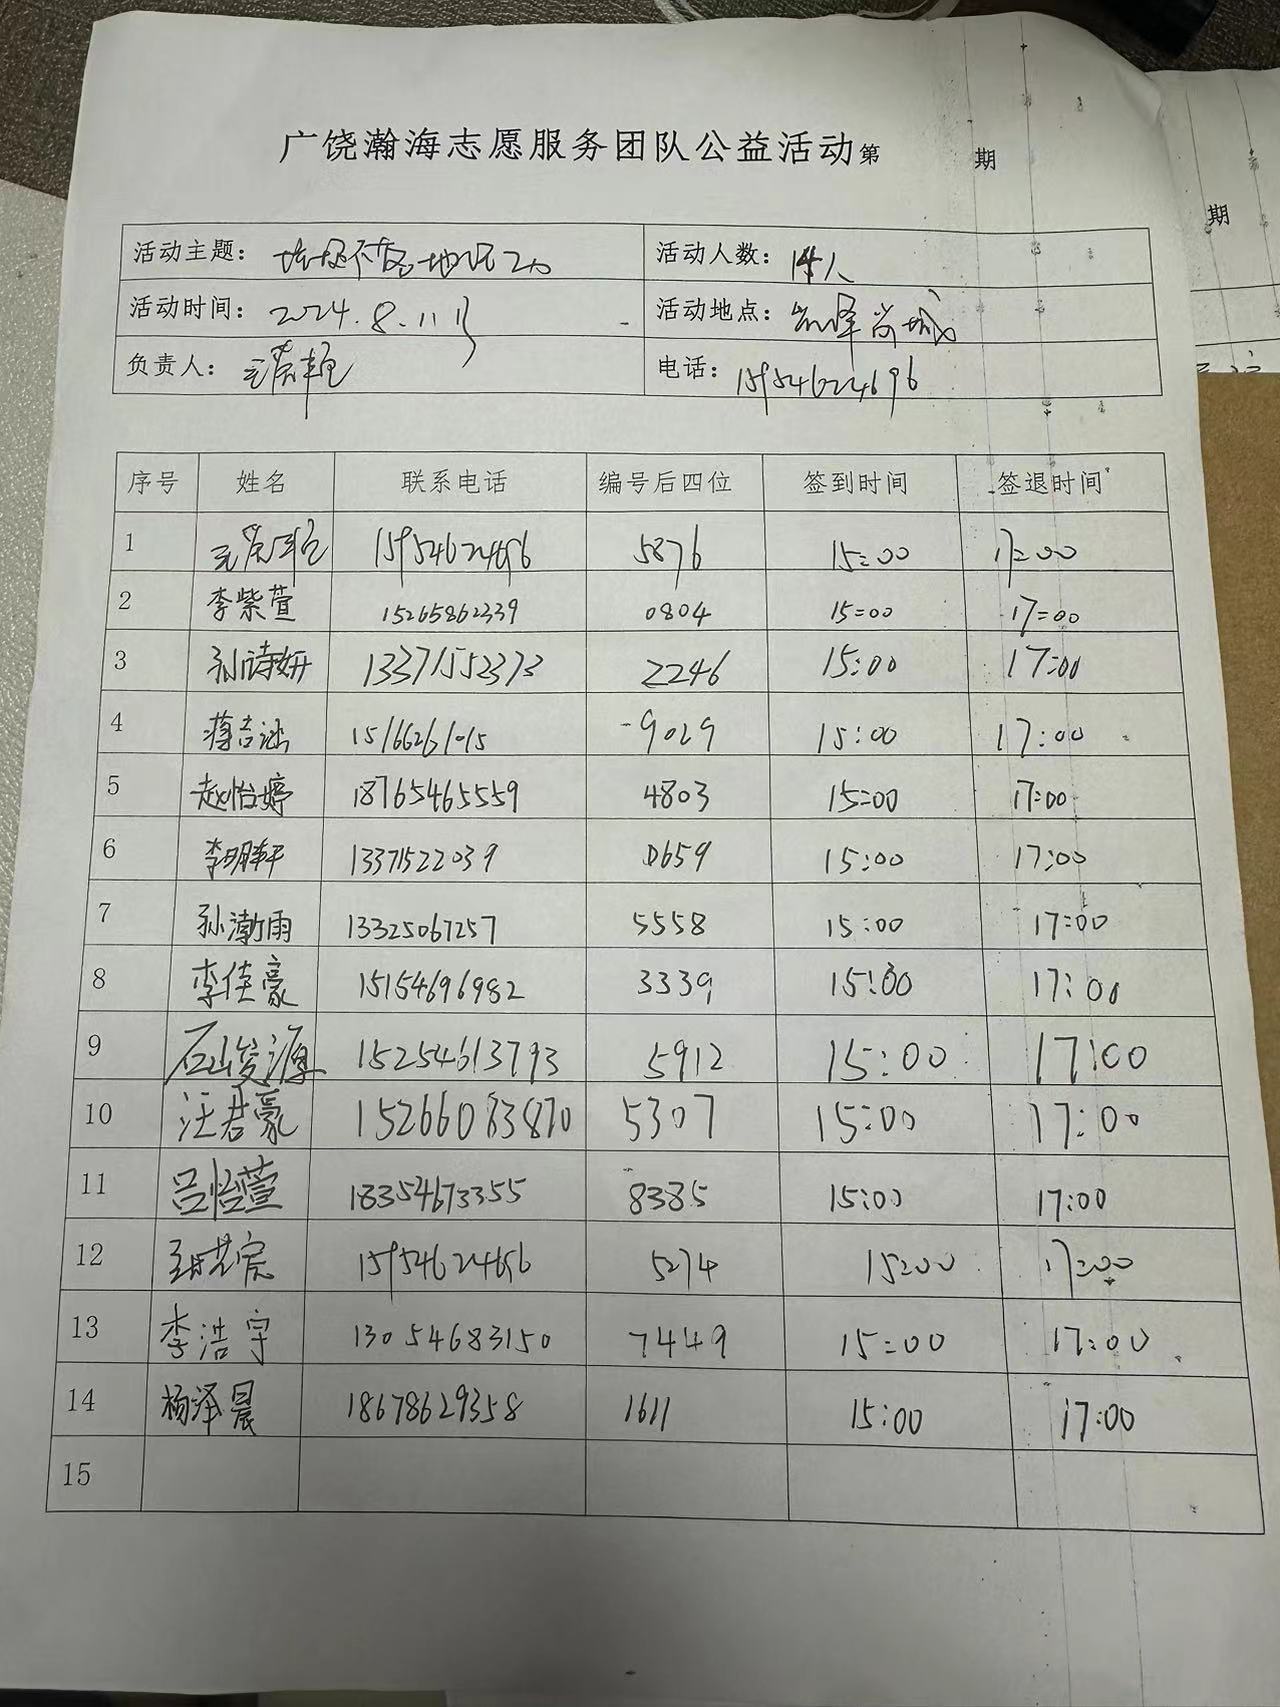 广饶瀚海志愿服务团队公益活动第 期
期
活动主题： 垃圾不落地 活动人数：14人
活动时间：2024.8.11日 活动地点：尚城
负责人： 电话：15954624696
序号 姓名 联系电话 编号后四位 签到时间 签退时间
1 15954624696 5876 15:00 17:00
2 李紫萱 15265862339 0804 15:00 17:00
3 孙诗妍 13371552373 2246 15:00 17:00
4 蒋吉涵 9029 15:00 17:00
5 赵怡婷 18765465559 4803 15:00 17:00
6 李明轩 13371522039 0659 15:00 17:00
7 孙渤雨 13325067257 5558 15:00 17:00
8 李佳豪 15154696982 3339 15:00 17:00
9 石峻源 15254613793 5912 15:00 17:00
10 汪君豪 15266083870 5307 15:00 17:00
11 吕怡萱 18354673355 8385 15:00 17:00
12 15954624696 5274 15:00 17:00
13 李浩宇 13054683150 7449 15:00 17:00
14 杨泽晨 18678629358 1611 15:00 17:00
15